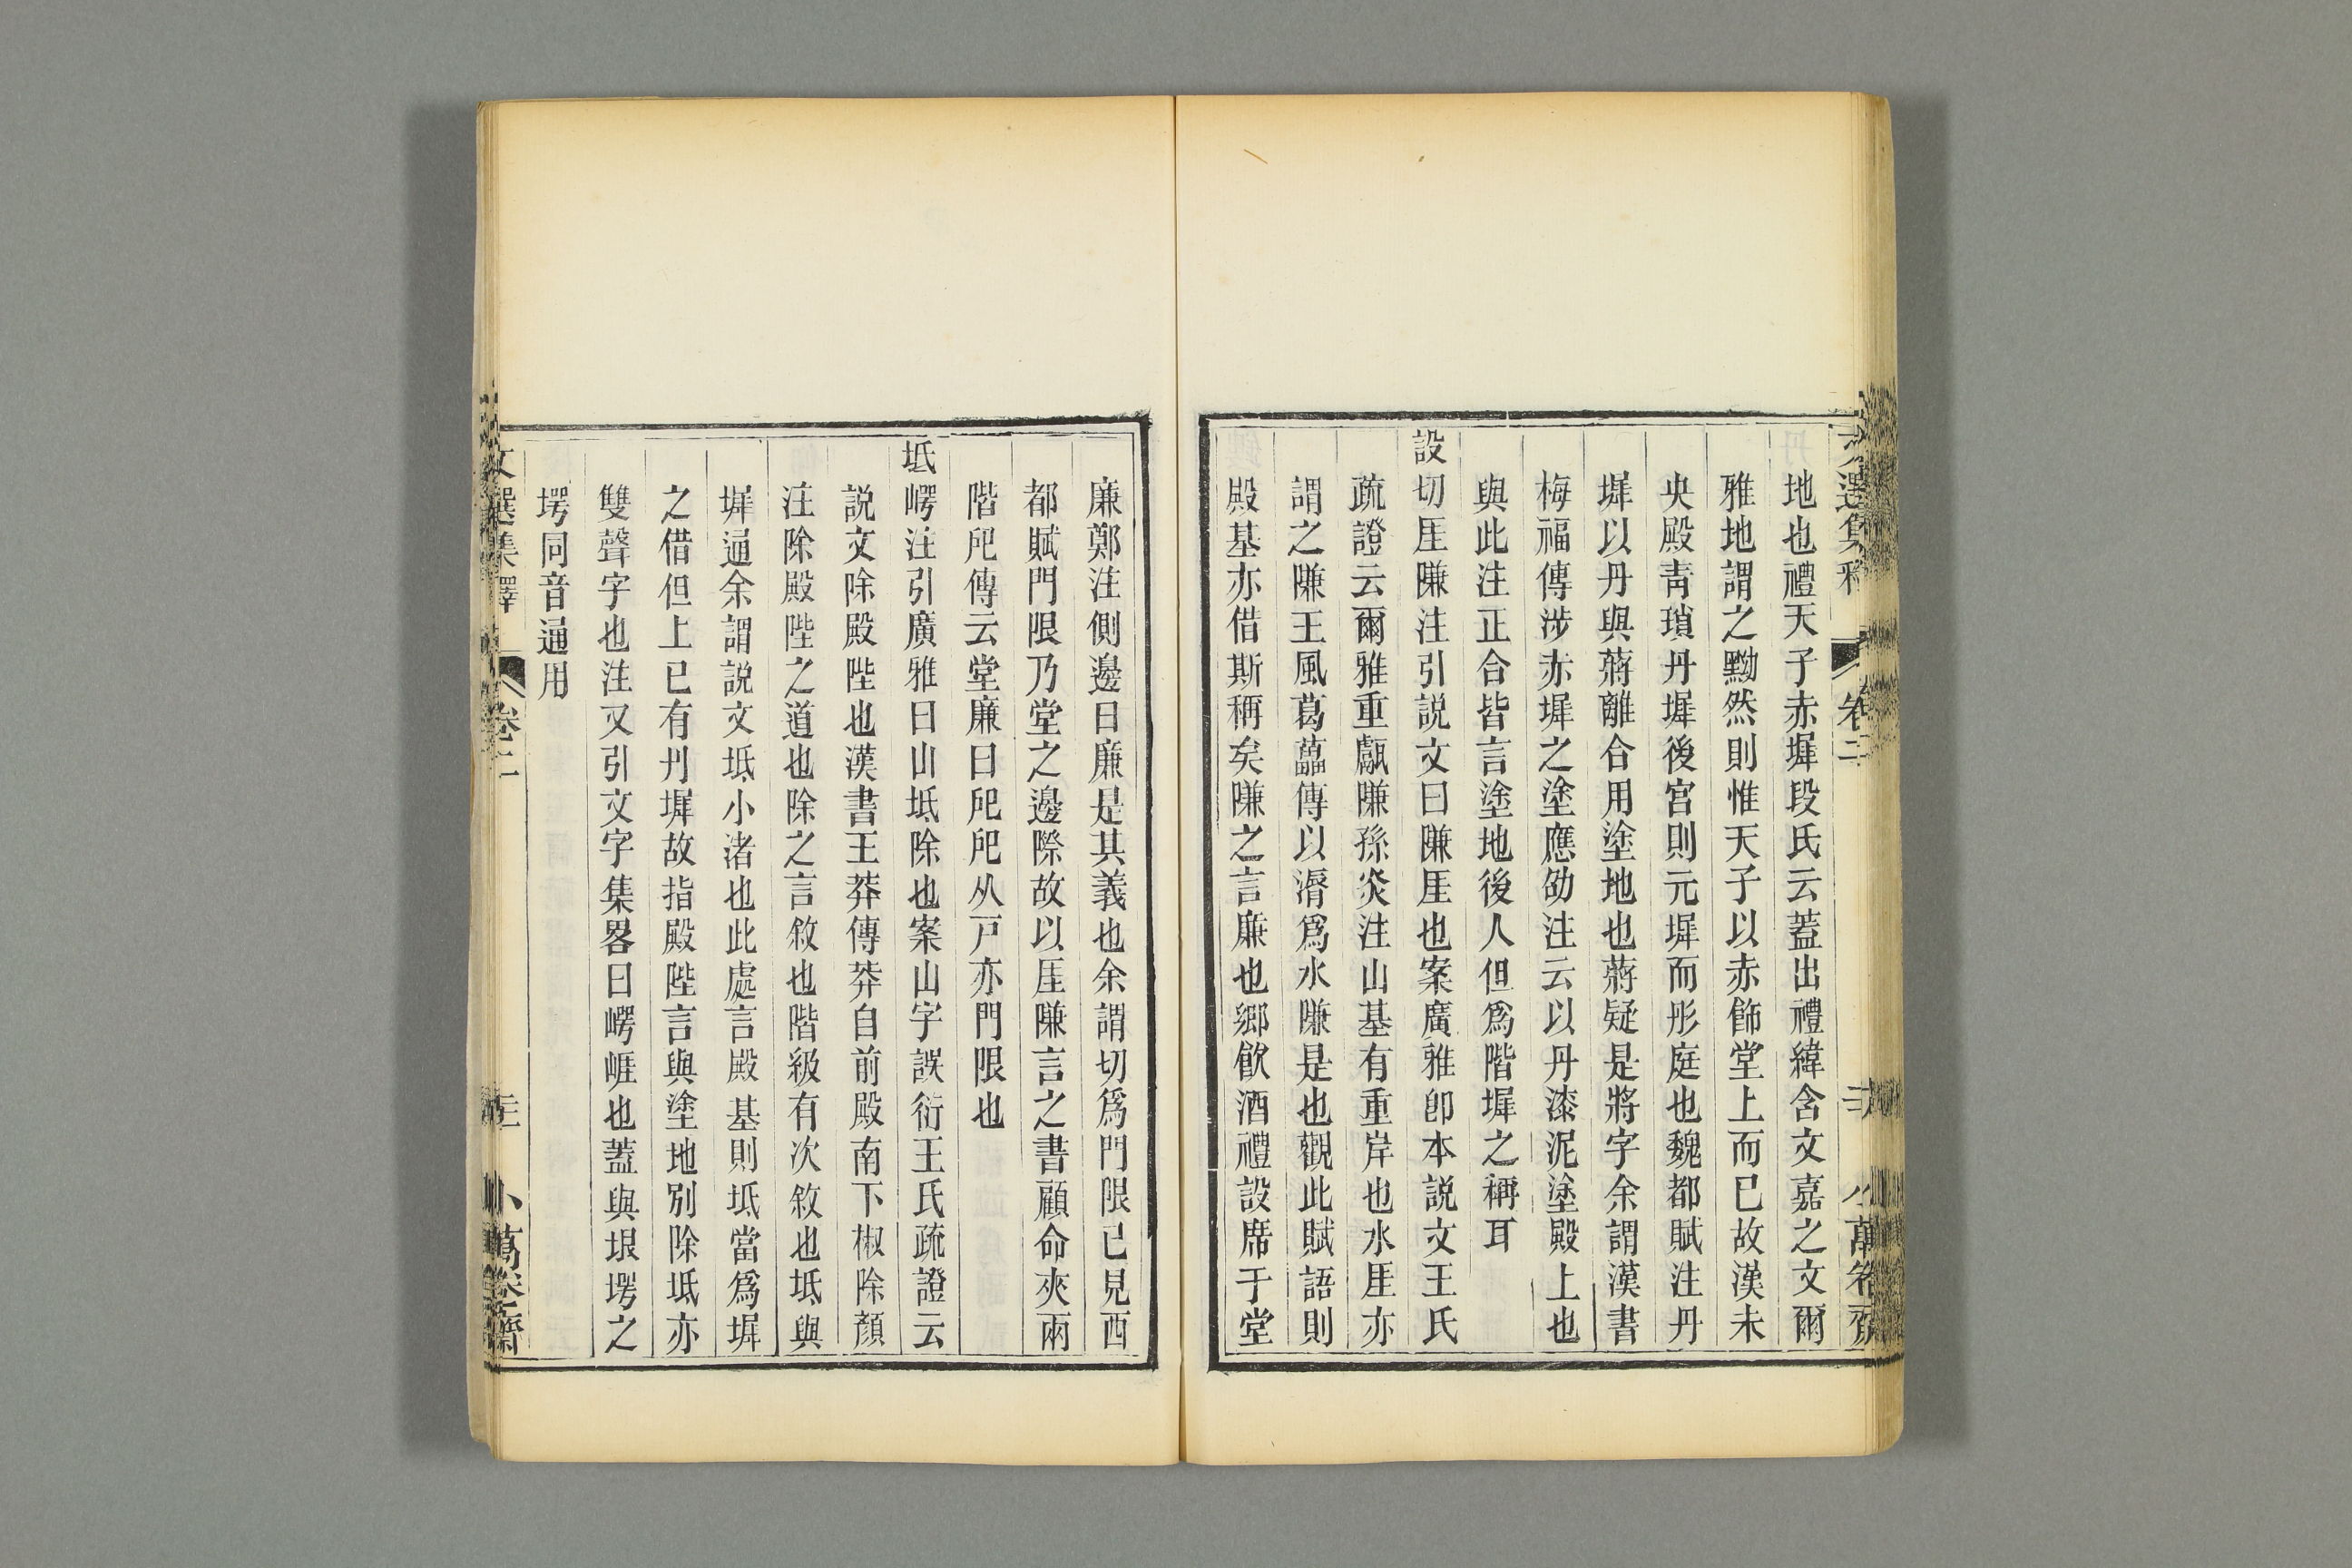 地也禮天子赤墀段氏云蓋出禮緯含文嘉之文爾
雅地謂之黝然則惟天子以赤飾堂上而巳故漢未
央殿靑瑣丹墀後宮則元墀而彤庭也魏都賦注丹
墀以丹與蔣離合用塗地也蔣疑是將字余謂漢書
梅福傳涉赤墀之塗應劭注云以丹漆泥塗殿上也
與此注正合皆言塗地後人但爲階墀之稱耳
設切厓隒注引說文曰隒厓也案廣雅卽本說文王氏
疏證云爾雅重甗隒孫炎注山基有重岸也水厓亦
謂之隒王風葛藟傳以漘爲水隒是也觀此賦語則
殿基亦借斯稱矣隒之言廉也鄉飲酒禮設席于堂
廉鄭注側邊曰廉是其義也余謂切爲門限已見西
都賦門限乃堂之邊際故以厓隒言之書顧命夾兩
階戺傳云堂廉曰戺戺从戸亦門限也
坻崿注引廣雅曰山坻除也案山字誤衍王氏疏證云
說文除殿陛也漢書王莽傳莽自前殿南下椒除顏
注除殿陛之道也除之言敘也階級有次敘也坻與
墀通余謂說文坻小渚也此處言殿基則坻當爲墀
之借但上已有丹墀故指殿陛言與塗地別除坻亦
雙聲字也注又引文字集畧曰崿崕也蓋與垠堮之
堮同音通用
文選集釋
卷二
小萬卷齋